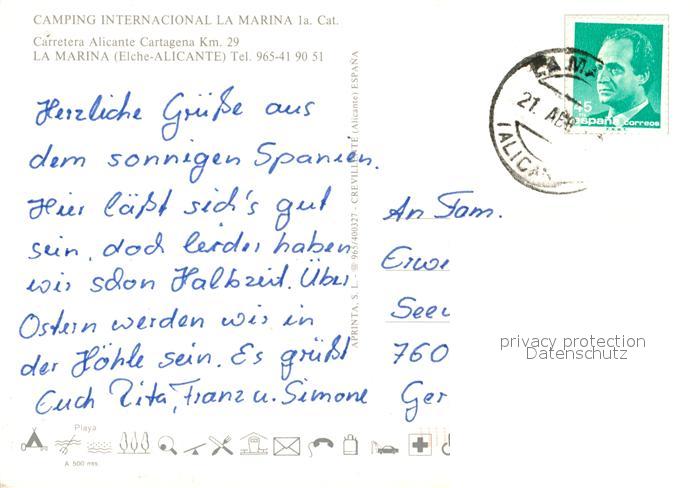 CAMPING INTERNACIONAL LA MARINA 1a. Cat.
Carretera Alicante Cartagena Km. 29
LA MARINA (Elche-ALICANTE) Tel. 965-41 90 51
Herzliche Grüße aus
dem sonnigen Spanien.
Hier läßt sich's gut
sein, doch leider haben
wir schon Halbzeit. Über
Ostern werden wir in
der Höhle sein. Es grüßt
Euch Rita, Franz u. Simone
An Fam.
Erwi
Seeu
760
Ger
APRINTA, S. L. - 965/400327 - CREVILLENTE (Alicante) ESPAÑA
45
España correos
LA MA
21. ABR
(ALICA
privacy protection
Datenschutz
Playa
A 500 mts.